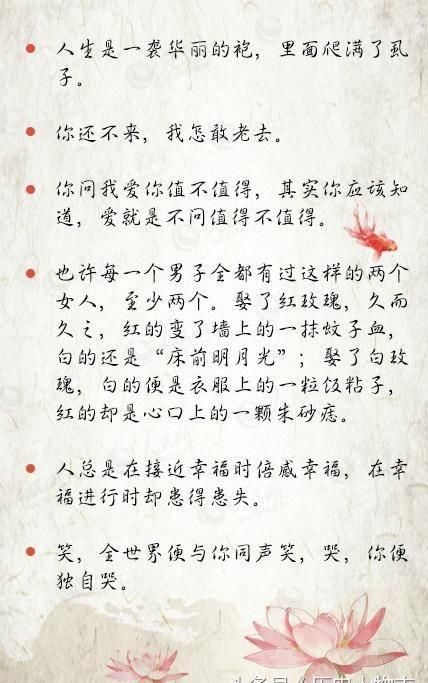 人生是一袭华丽的袍，里面爬满了虱
子。
你还不来，我怎敢老去。
你问我爱你值不值得，其实你应该知
道，爱就是不问值得不值得。
也许每一个男子全都有过这样的两个
女人，至少两个。娶了红玫瑰，久而
久之，红的变了墙上的一抹蚊子血，
白的还是“床前明月光”；娶了白玫
瑰，白的便是衣服上的一粒饭粘子，
红的却是心口上的一颗朱砂痣。
人总是在接近幸福时倍感幸福，在幸
福进行时却患得患失。
笑，全世界便与你同声笑，哭，你便
独自哭。